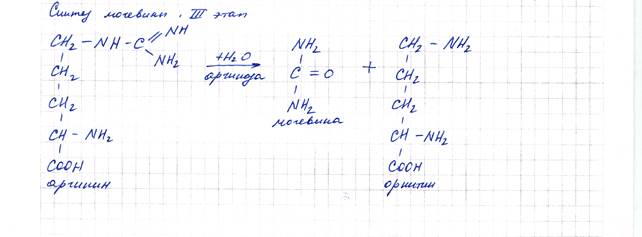 Синтез мочевины. III этап
CH₂ – NH – C
NH
NH₂
CH₂
CH₂
CH – NH₂
COOH
аргинин
+H₂O
аргиназа
NH₂
C = O
NH₂
мочевина
+
CH₂ – NH₂
CH₂
CH₂
CH – NH₂
COOH
орнитин